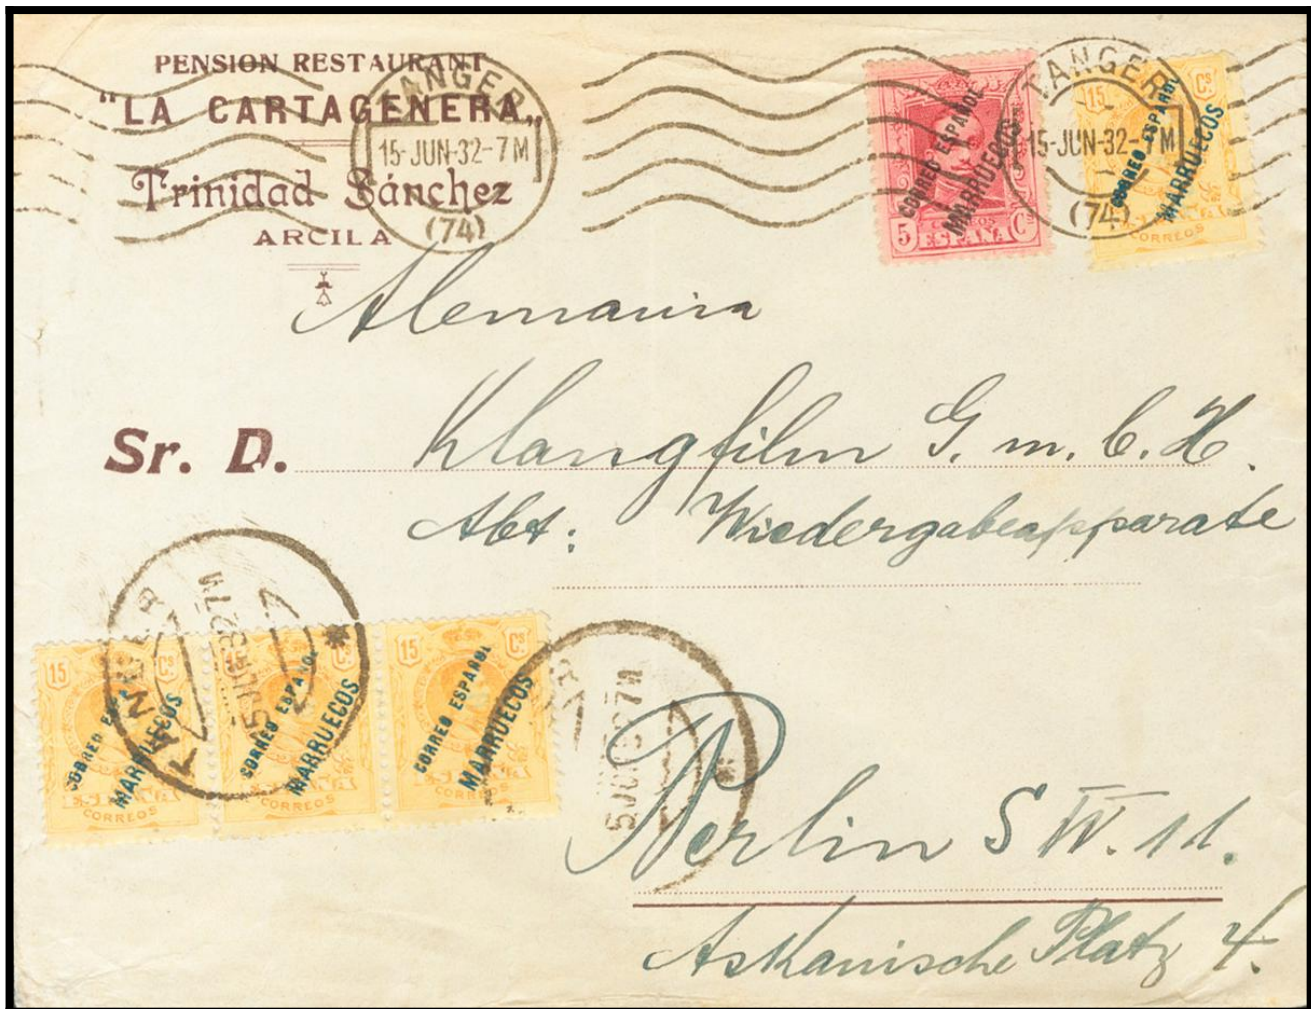 PENSION RESTAURANT
"LA CARTAGENERA"
Trinidad Sánchez
ARCILA
TANGER
15-JUN-32-7M
(74)
TANGER
15-JUN-32-7M
(74)
CORREO ESPAÑOL
MARRUECOS
5 Cs
CORREOS
ESPAÑA
15 Cs
CORREO ESPAÑOL
MARRUECOS
CORREOS
Alemania
Sr. D. Klangfilm G. m. b. H.
Abt: Wiedergabeapparate
TANGER
15 Cs
CORREO ESPAÑOL
MARRUECOS
ESPAÑA
CORREOS
CORREO ESPAÑOL
MARRUECOS
CORREOS
15 Cs
CORREO ESPAÑOL
MARRUECOS
CORREOS
Berlin S W. 11.
Askanische Platz 4.